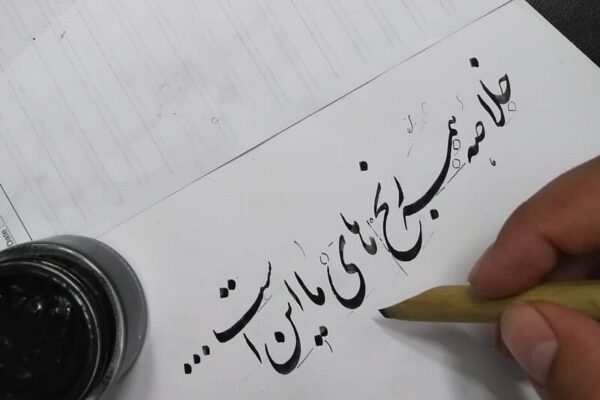 خلاصه همه رنج های ما این است ...
Date